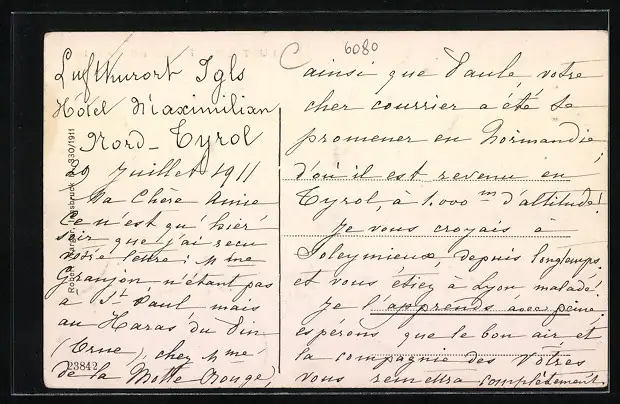 Luftkurort Igls
Hôtel Maximilian
Nord-Tyrol
29 Juillet 1911
Ma Chère Amie
Ce n'est qu'hier
soir que j'ai reçu
votre lettre; Mme
Granjon n'étant pas
à St Paul mais
au Haras du Pin
(Orne), chez Mme
de la Motte Rouge,
23842
1911
6080
ainsi que Paule, votre
cher courrier a été se
promener en Normandie
d'où il est revenu en
Tyrol, à 1.000 m d'altitude!
Je vous croyais à
Soleymieux, depuis longtemps
et vous étiez à Lyon malade!
Je l'apprends avec peine
espérons que le bon air et
la compagnie des Vôtres
vous remettra complètement